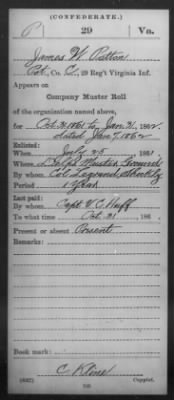 (CONFEDERATE.)
P 29 Va.
James W. Patton
Co. C, 29 Reg't Virginia Inf.
Appears on
Company Muster Roll
of the organization named above,
for Oct. 31, 1861 to Jan. 31, 1862.
dated Jan 7, 1862
Enlisted:
When July 25, 1861.
Where Muster Ground
By whom Col.
Period 1 Year
Last paid:
By whom Capt W. C. Huff
To what time Oct. 31, 186 .
Present or absent Present
Remarks:
Book mark:
C. Kline
(642) Copyist.